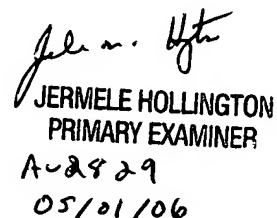 JERMELE HOLLINGTON
PRIMARY EXAMINER
AU2829
05/01/06